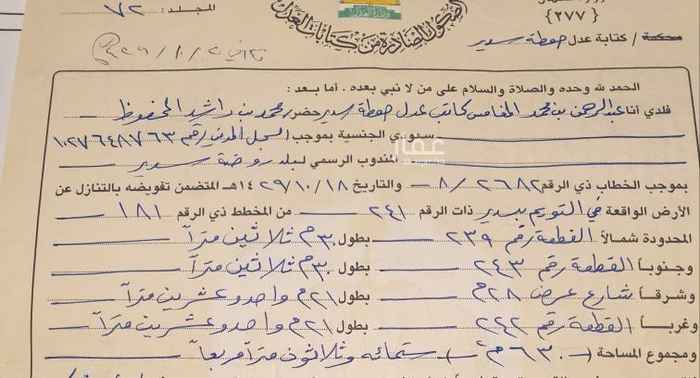 المجلد: ٧٢
الصكوك الصادرة من كتابات العدل
{٢٧٧}
محكمة / كتابة عدل حوطة سدير
الحمد لله وحده والصلاة والسلام على من لا نبي بعده . أما بعد :
فلدي أنا عبدالرحمن بن محمد كاتب عدل حوطة سدير حضر محمد بن راشد المحفوظ
سعودي الجنسية بموجب السجل المدني رقم ١٠٢٧٦٤٨٧٦٣
المندوب الرسمي لبلدية روضة سدير
بموجب الخطاب ذي الرقم ٨/٢٦٨٢ والتاريخ ١٤٢٩/١٠/١٨هـ المتضمن تفويضه بالتنازل عن
الأرض الواقعة في التويم بسدير ذات الرقم ٢٤١ من المخطط ذي الرقم ١٨١
المحدودة شمالاً القطعة رقم ٢٣٩ بطول ٣٠م ثلاثين متراً
وجنوباً القطعة رقم ٢٤٣ بطول ٣٠م ثلاثين متراً
وشرقاً شارع عرض ٢٨م بطول ٢١م واحد وعشرين متراً
وغرباً القطعة رقم ٢٤٢ بطول ٢١م واحد وعشرين متراً
ومجموع المساحة (٦٣٠م٢) ستمائه وثلاثون متراً مربعاً